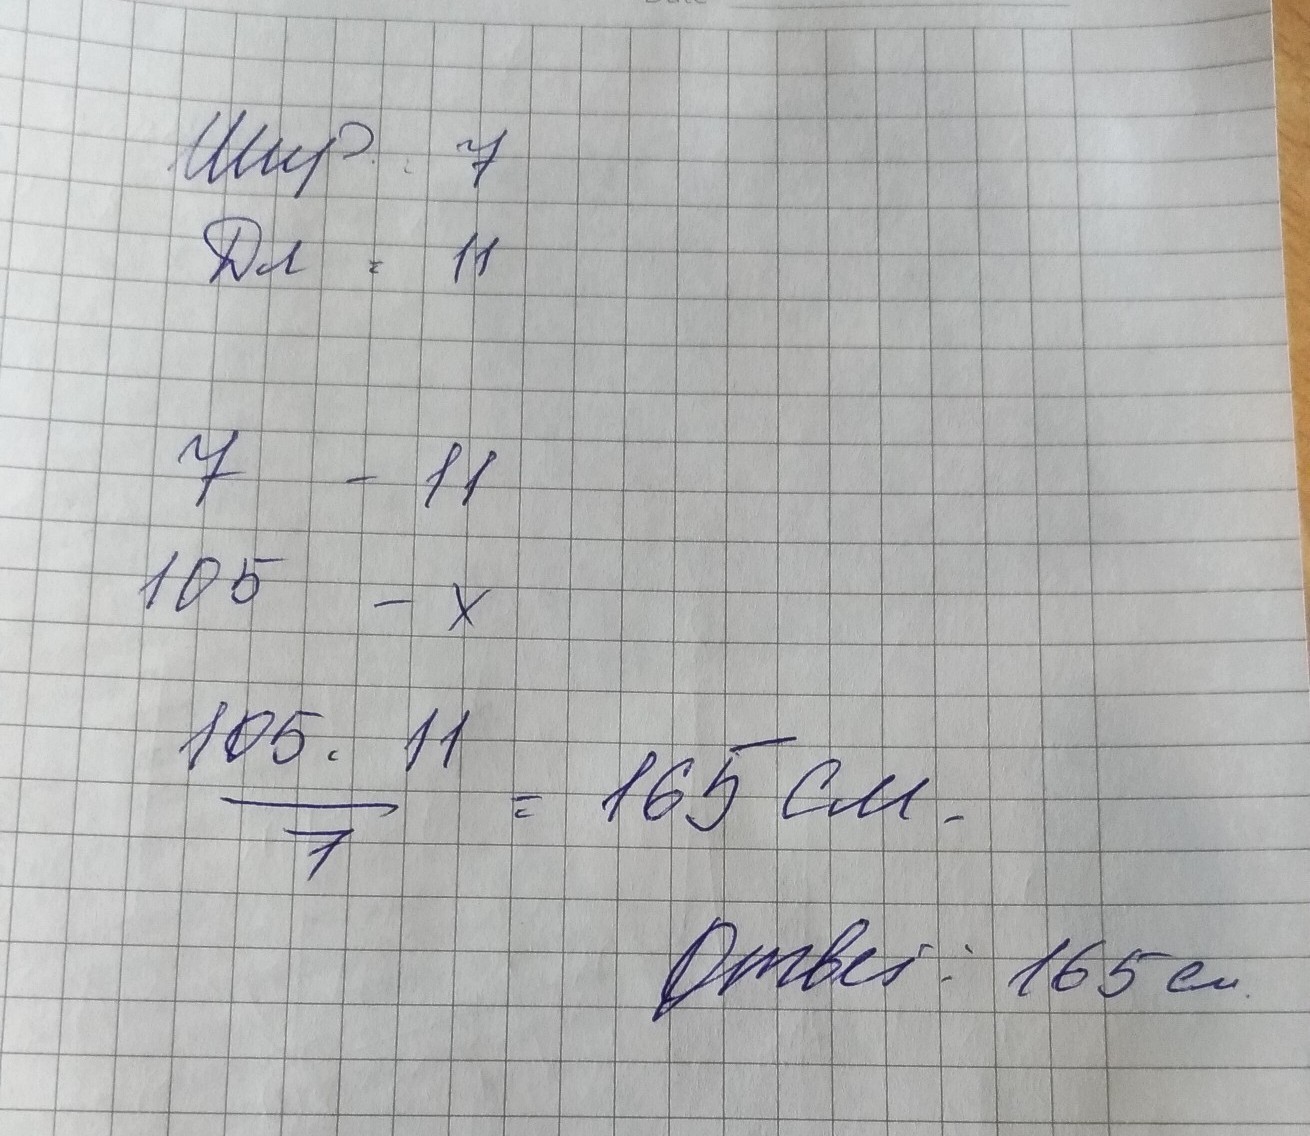 Date
Шир. = 7
Дл = 11
7 - 11
105 - x
105. 11
7
= 165 см.
Ответ: 165 см.